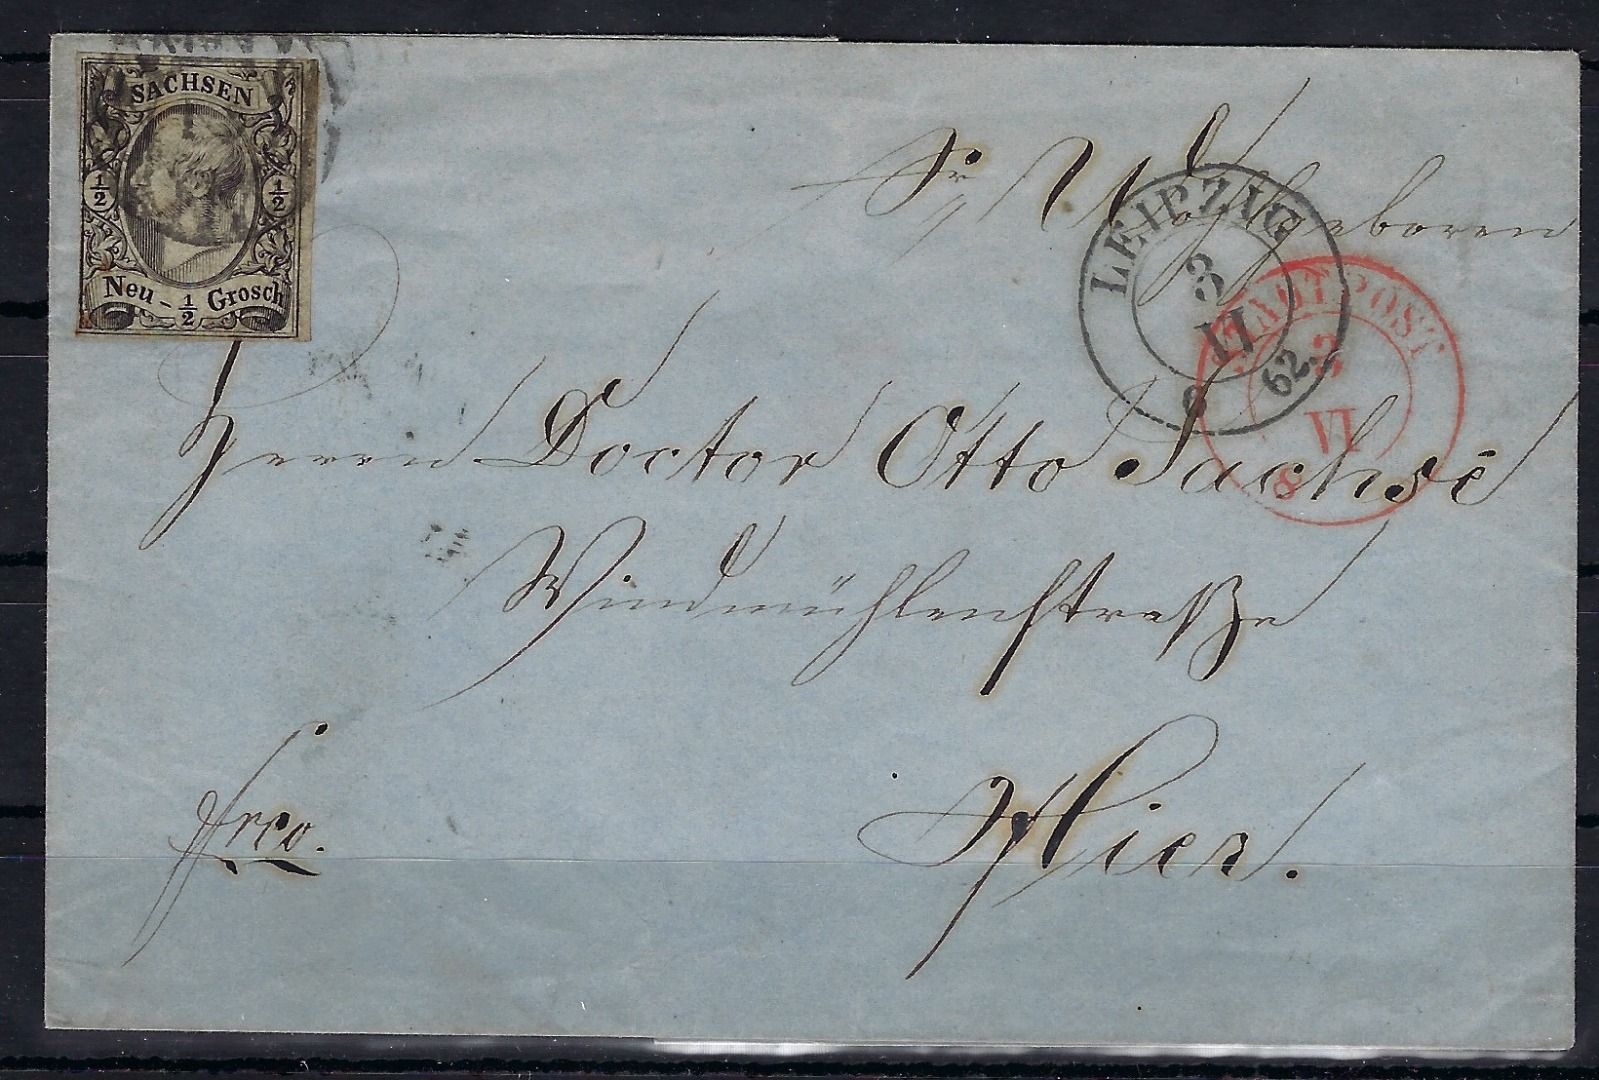 SACHSEN
1/2 1/2
Neu- 1/2 Grosch
Sr Wohlgeboren
LEIPZIG
3
VI
62
STADTPOST
3
VI
8
Herrn Doctor Otto Sachse
Windmühlenstraße
Hier.
frco.